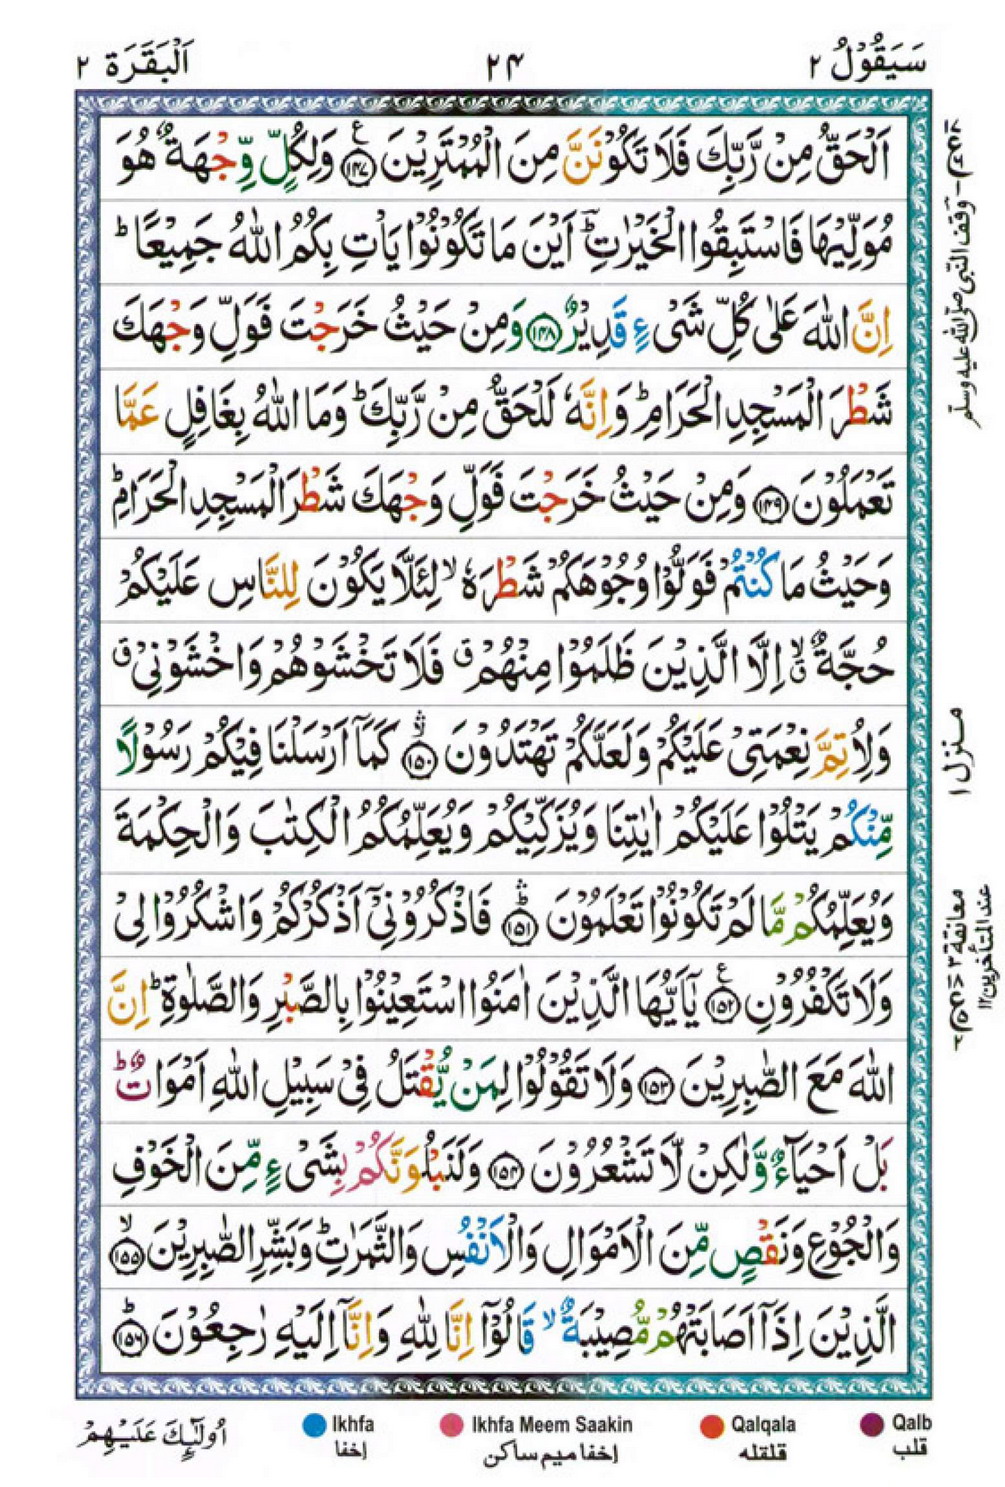 سَيَقُوْلُ ٢
٢٤
اَلْبَقَرَة ٢
اَلْحَقُّ مِنْ رَّبِّكَ فَلَا تَكُوْنَنَّ مِنَ الْمُمْتَرِيْنَ ﴿١٤٧﴾ۧ وَلِكُلٍّ وِّجْهَةٌ هُوَ
مُوَلِّيْهَا فَاسْتَبِقُوا الْخَيْرٰتِؔ ؕ اَيْنَ مَا تَكُوْنُوْا يَاْتِ بِكُمُ اللّٰهُ جَمِيْعًا ؕ
اِنَّ اللّٰهَ عَلٰى كُلِّ شَىْءٍ قَدِيْرٌ ﴿١٤٨﴾ وَمِنْ حَيْثُ خَرَجْتَ فَوَلِّ وَجْهَكَ
شَطْرَ الْمَسْجِدِ الْحَرَامِ ؕ وَاِنَّهٗ لَلْحَقُّ مِنْ رَّبِّكَ ؕ وَمَا اللّٰهُ بِغَافِلٍ عَمَّا
تَعْمَلُوْنَ ﴿١٤٩﴾ وَمِنْ حَيْثُ خَرَجْتَ فَوَلِّ وَجْهَكَ شَطْرَ الْمَسْجِدِ الْحَرَامِ ؕ
وَحَيْثُ مَا كُنْتُمْ فَوَلُّوْا وُجُوْهَكُمْ شَطْرَهٗ ۙ لِئَلَّا يَكُوْنَ لِلنَّاسِ عَلَيْكُمْ
حُجَّةٌ ۙۗ اِلَّا الَّذِيْنَ ظَلَمُوْا مِنْهُمْ ۗ فَلَا تَخْشَوْهُمْ وَاخْشَوْنِيْ ۗ
وَلِاُتِمَّ نِعْمَتِىْ عَلَيْكُمْ وَلَعَلَّكُمْ تَهْتَدُوْنَ ﴿١٥٠﴾ۛ كَمَآ اَرْسَلْنَا فِيْكُمْ رَسُوْلًا
مِّنْكُمْ يَتْلُوْا عَلَيْكُمْ اٰيٰتِنَا وَيُزَكِّيْكُمْ وَيُعَلِّمُكُمُ الْكِتٰبَ وَالْحِكْمَةَ
وَيُعَلِّمُكُمْ مَّا لَمْ تَكُوْنُوْا تَعْلَمُوْنَ ﴿١٥١﴾ۛ فَاذْكُرُوْنِيْٓ اَذْكُرْكُمْ وَاشْكُرُوْا لِيْ
وَلَا تَكْفُرُوْنِ ﴿١٥٢﴾ۧ يٰٓاَيُّهَا الَّذِيْنَ اٰمَنُوا اسْتَعِيْنُوْا بِالصَّبْرِ وَالصَّلٰوةِ ؕ اِنَّ
اللّٰهَ مَعَ الصّٰبِرِيْنَ ﴿١٥٣﴾ وَلَا تَقُوْلُوْا لِمَنْ يُّقْتَلُ فِيْ سَبِيْلِ اللّٰهِ اَمْوَاتٌ ؕ
بَلْ اَحْيَآءٌ وَّلٰكِنْ لَّا تَشْعُرُوْنَ ﴿١٥٤﴾ وَلَنَبْلُوَنَّكُمْ بِشَىْءٍ مِّنَ الْخَوْفِ
وَالْجُوْعِ وَنَقْصٍ مِّنَ الْاَمْوَالِ وَالْاَنْفُسِ وَالثَّمَرٰتِ ؕ وَبَشِّرِ الصّٰبِرِيْنَ ﴿١٥٥﴾ۙ
الَّذِيْنَ اِذَآ اَصَابَتْهُمْ مُّصِيْبَةٌ ۙ قَالُوْٓا اِنَّا لِلّٰهِ وَاِنَّآ اِلَيْهِ رٰجِعُوْنَ ﴿١٥٦﴾ؕ
وقف النبى صلى الله عليه وسلم
منزل ١
معانقة ٣
عند المتأخرين ١٢
اُولٰٓئِكَ عَلَيْهِمْ
Ikhfa
إخفا
Ikhfa Meem Saakin
إخفا ميم ساكن
Qalqala
قلقله
Qalb
قلب